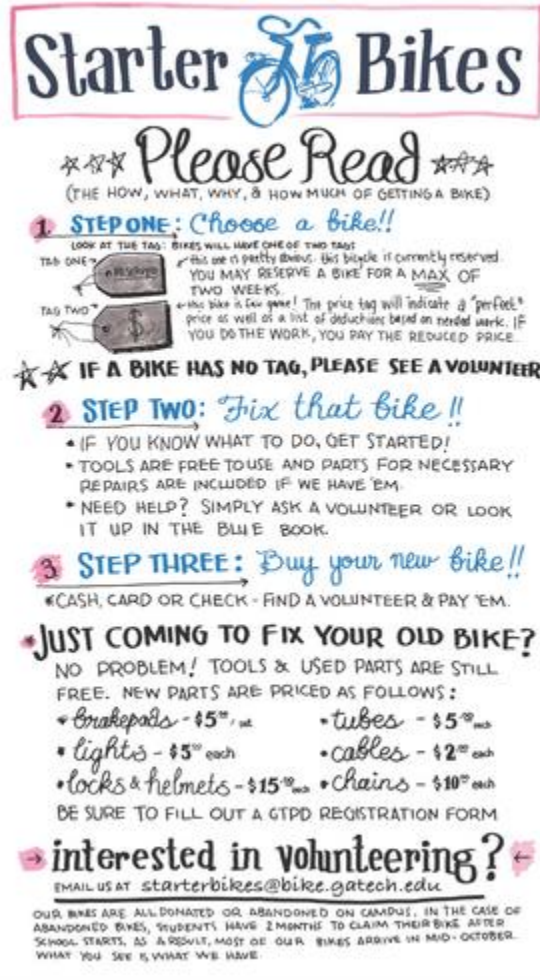 Starter Bikes
Please Read
(THE HOW, WHAT, WHY, & HOW MUCH OF GETTING A BIKE)
1. STEP ONE: Choose a bike!!
LOOK AT THE TAG: BIKES WILL HAVE ONE OF TWO TAGS
TAG ONE
this one is pretty obvious. this bicycle is currently reserved.
YOU MAY RESERVE A BIKE FOR A MAX OF
TWO WEEKS.
TAG TWO
$
this bike is fair game! The price tag will indicate a "perfect"
price as well as a list of deductions based on needed work. IF
YOU DO THE WORK, YOU PAY THE REDUCED PRICE.
IF A BIKE HAS NO TAG, PLEASE SEE A VOLUNTEER
2. STEP TWO: Fix that bike!!
• IF YOU KNOW WHAT TO DO, GET STARTED!
• TOOLS ARE FREE TO USE AND PARTS FOR NECESSARY
REPAIRS ARE INCLUDED IF WE HAVE 'EM.
• NEED HELP? SIMPLY ASK A VOLUNTEER OR LOOK
IT UP IN THE BLUE BOOK.
3. STEP THREE: Buy your new bike!!
CASH, CARD OR CHECK - FIND A VOLUNTEER & PAY 'EM.
JUST COMING TO FIX YOUR OLD BIKE?
NO PROBLEM! TOOLS & USED PARTS ARE STILL
FREE. NEW PARTS ARE PRICED AS FOLLOWS:
• brakepads - $5.00 / set • tubes - $5.00 each
• lights - $5.00 each • cables - $2.00 each
• locks & helmets - $15.00 each • chains - $10.00 each
BE SURE TO FILL OUT A GTPD REGISTRATION FORM
interested in volunteering?
EMAIL US AT starterbikes@bike.gatech.edu
OUR BIKES ARE ALL DONATED OR ABANDONED ON CAMPUS, IN THE CASE OF
ABANDONED BIKES, STUDENTS HAVE 2 MONTHS TO CLAIM THEIR BIKE AFTER
SCHOOL STARTS, AS A RESULT, MOST OF OUR BIKES ARRIVE IN MID-OCTOBER.
WHAT YOU SEE IS WHAT WE HAVE.